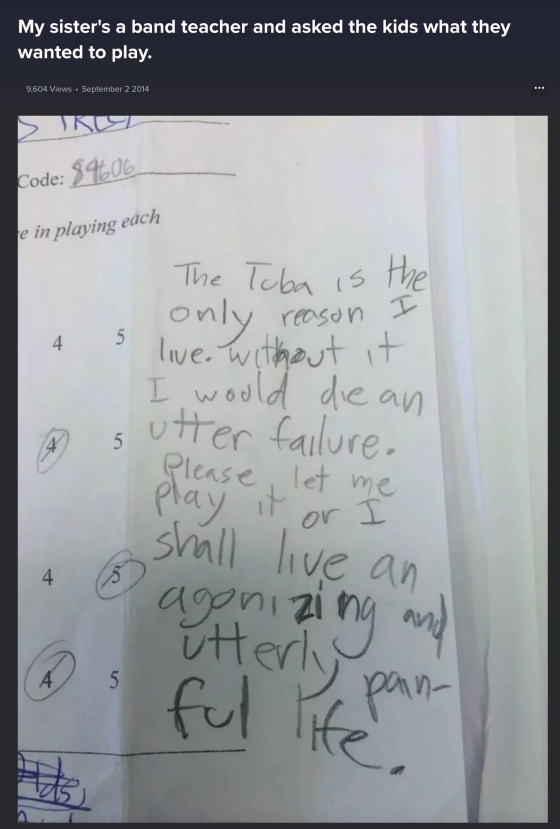 My sister's a band teacher and asked the kids what they
wanted to play.
9,604 Views • September 2 2014
...
STREET
Code: 84606
e in playing each
The Tuba is the
only reason I
4 5
live. without it
I would die an
4 5
utter failure.
Please let me
play it or I
shall live an
4 5
agonizing and
utterly pain-
4 5
ful life.